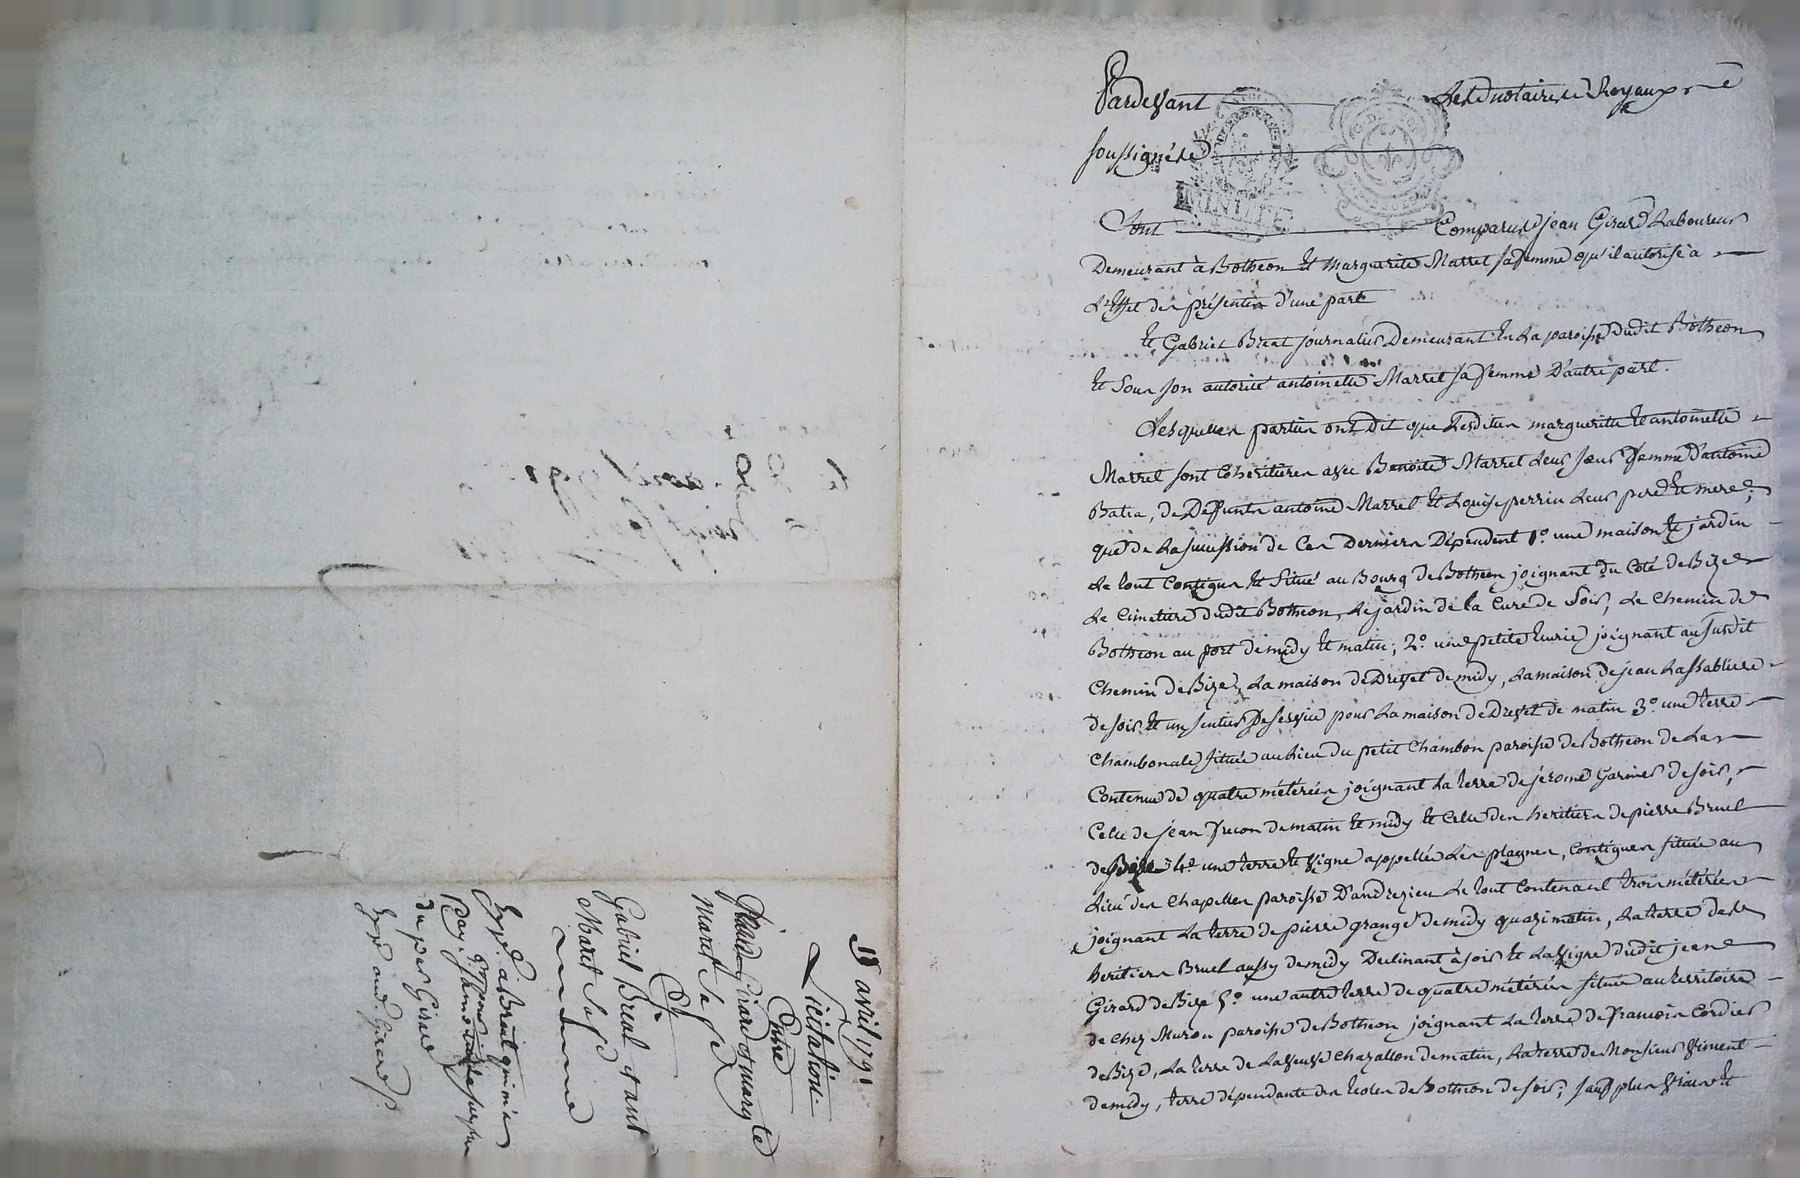 Pardevant Les notaires Royaux
soussignés
Sont Comparus Jean Girard Laboureur
Demeurant à Botheon Et marguerite Marret sa femme qu'il autorise à
L'Effet des présentes d'une part
Et Gabriel Breat journalier Demeurant En La paroisse dudit Botheon
Et sous son autorité antoinette Marret sa femme D'autre part.
Lesquelles parties ont Dit que Lesdites marguerite Et antoinette
Marrel sont Coheritieres avec Benoite Marret Leur sœur femme d'antoine
Batia, de Deffunts antoine Marrel Et Louise perrin Leur pere Et mere;
que de La sucession de Ces Derniers Dépendent 1º. une maison Et jardin
Le tout Contigus Et Situé au Bourg de Botheon joignant du Coté de Bize
Le Cimetiere dudit Botheon, Le jardin de la Cure de Soir, Le Chemin de
Botheon au port de midy Et matin; 2º. une petite Ecurie joignant au susdit
Chemin de Bize, La maison de Drevet de midy, La maison de jean Lassabliere
de soir Et un sentier De service pour La maison de Drevet de matin 3º. une terre
Chambonale située au Lieu du petit Chambon paroisse de Botheon de La
Contenue de quatre métérées joignant La terre de jérome Garnier de soir,
Celle de jean fucon de matin Et midy Et Celle des heritiers de pierre Bruel
de Bize 4º. une terre Et vigne appellée Les plagnes, Contigues située au
Lieu des Chapelles paroisse D'andrezieu Le tout Contenant trois métérées
joignant La terre de pierre grange de midy quazi matin, La terre des
heritiers Bruel aussy de midy Declinant à soir Et La vigne dudit jean
Girard de Bize 5º. une autre terre de quatre métérées située au territoire
de Chez Muron paroisse de Botheon joignant La terre de françois Cordier
de Bize, La terre de La veuve Chazallon de matin, La terre de Monsieur
de midy, terre dépendante des Ecoles de Botheon de soir; sauf plus vrais Et
18 avril 1791
Licitation
Entre
Girard & marg.te
Maret sa fe
Et
Gabriel Breat & ant
Maret sa fe
Exp. a Breat
du per Girard
Exp. aud. Girard